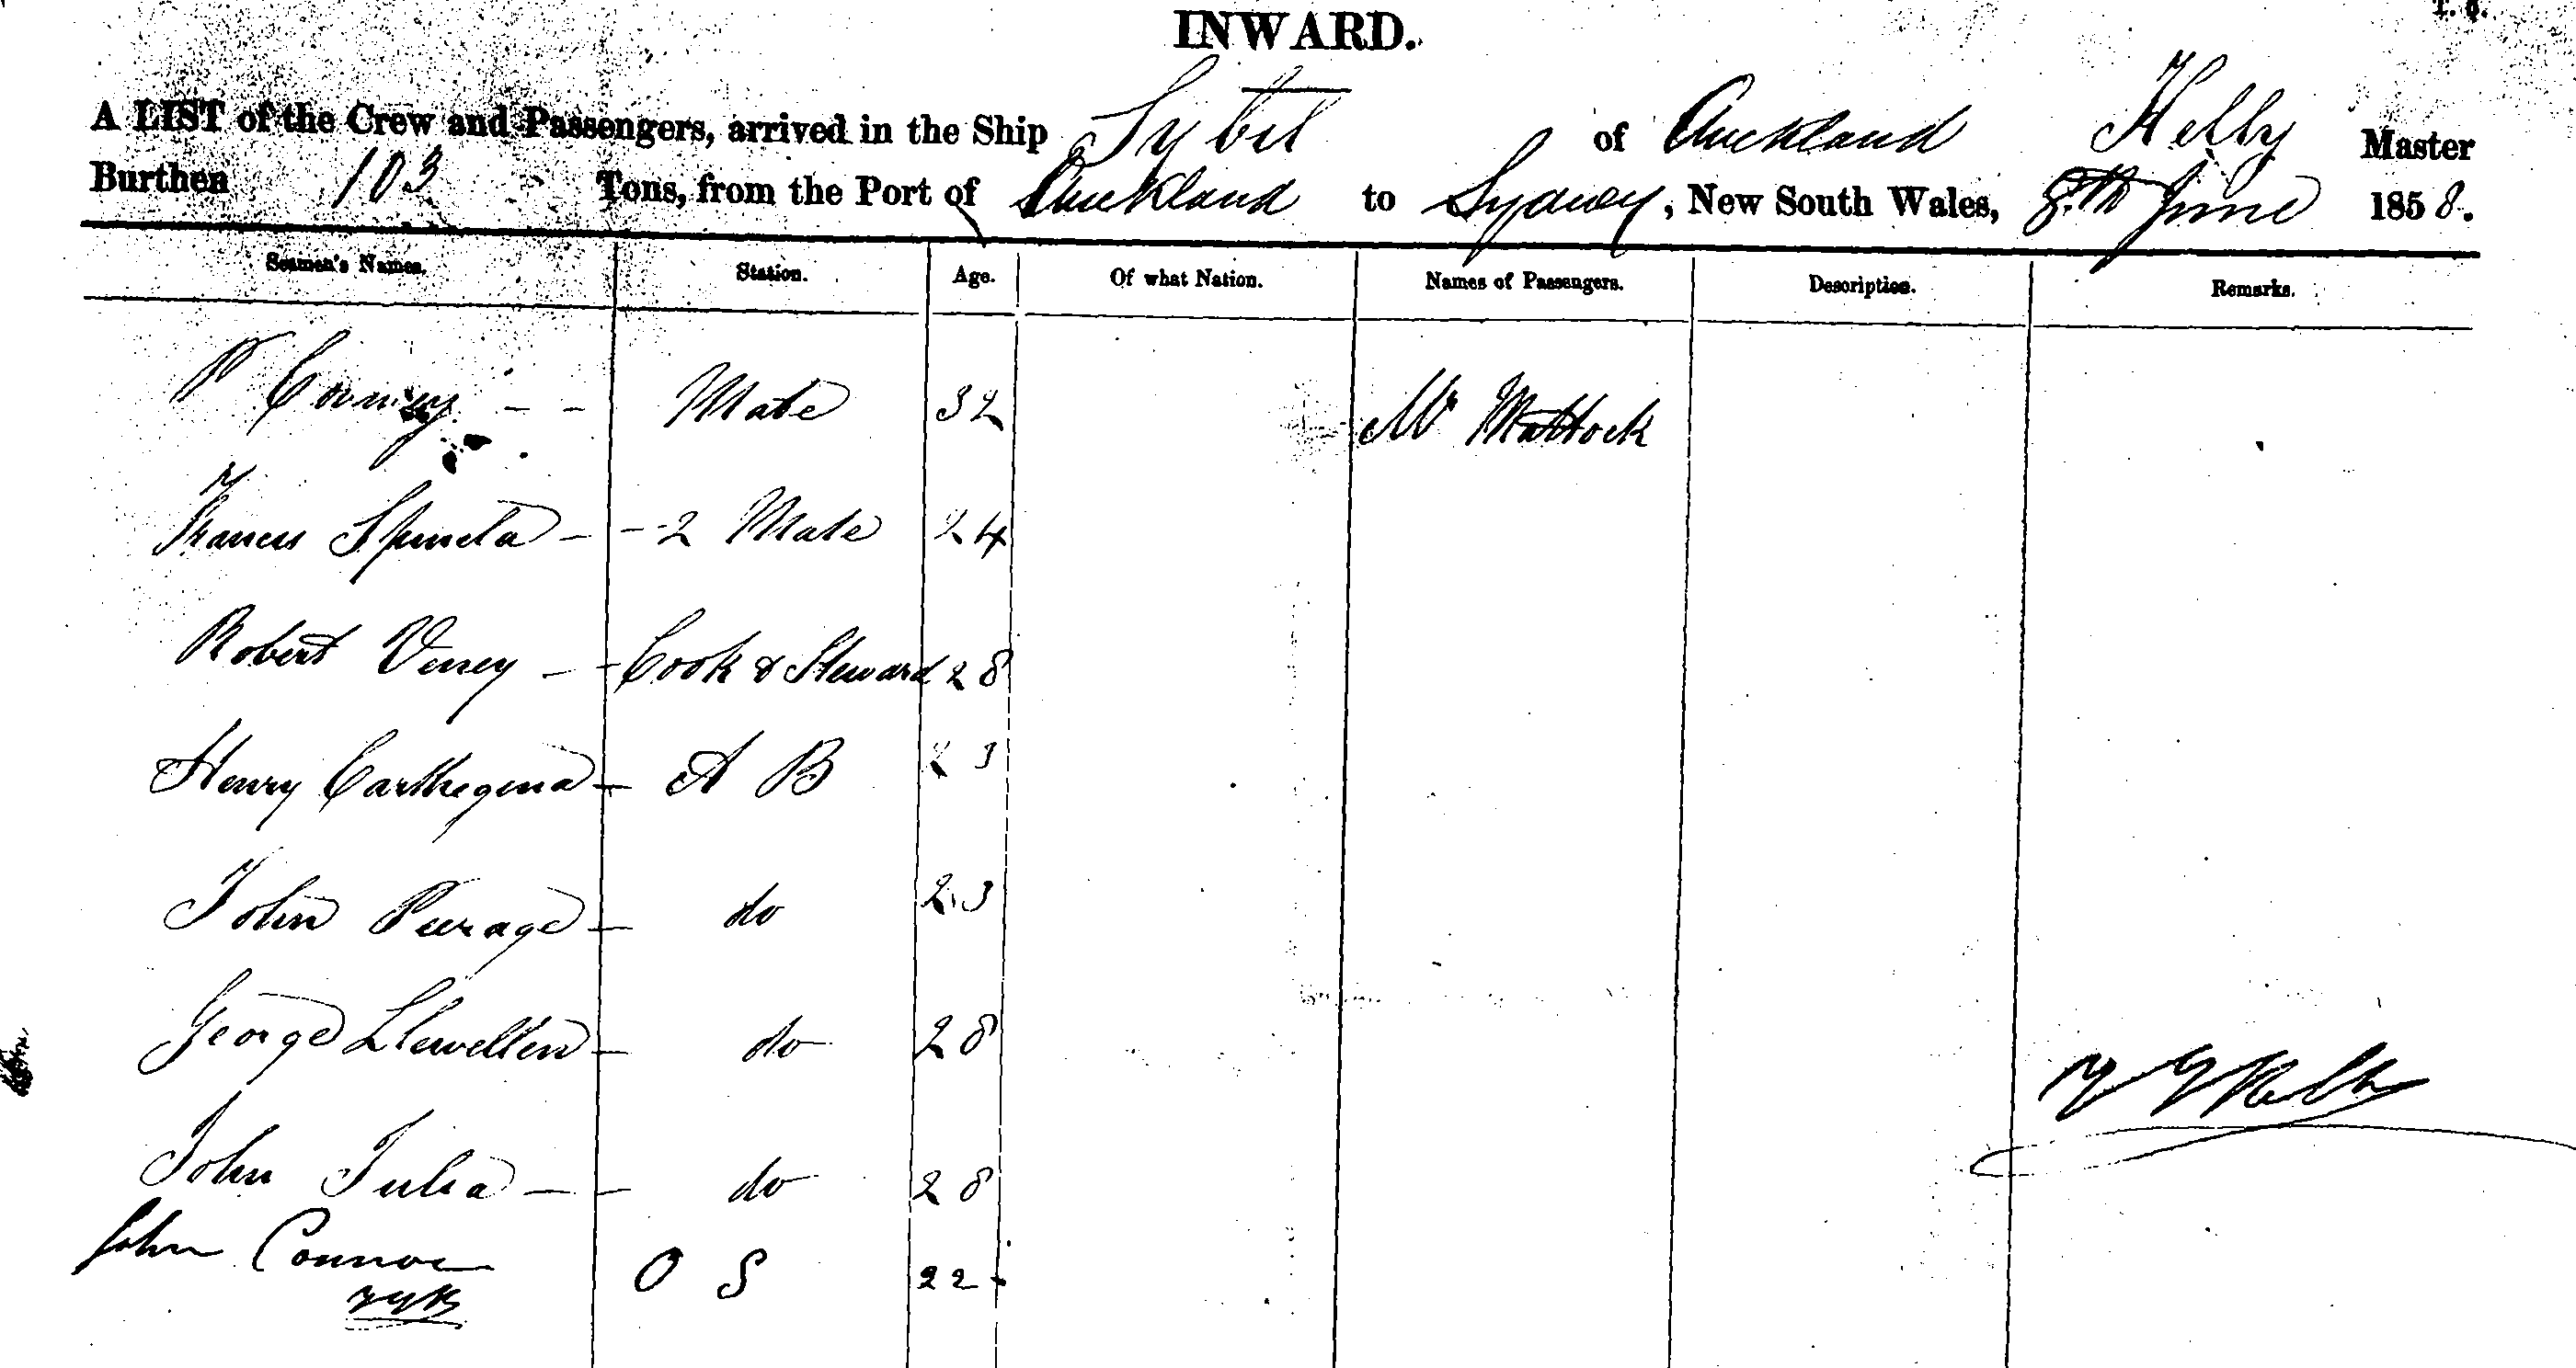 INWARD.
A LIST of the Crew and Passengers, arrived in the Ship Sybil of Auckland Kelly Master
Burthen 103 Tons, from the Port of Auckland to Sydney, New South Wales, 8th June 1858.
Seamen's Names. Station. Age. Of what Nation. Names of Passengers. Description. Remarks.
P Mate 32 Mr Mattock
Francis 2 Mate 24
Robert Verrey Cook & Steward 28
Henry Carthegena A B 23
John Peerage do 23
George Llewellen do 28
John Julia do 28
John Connor O S 22